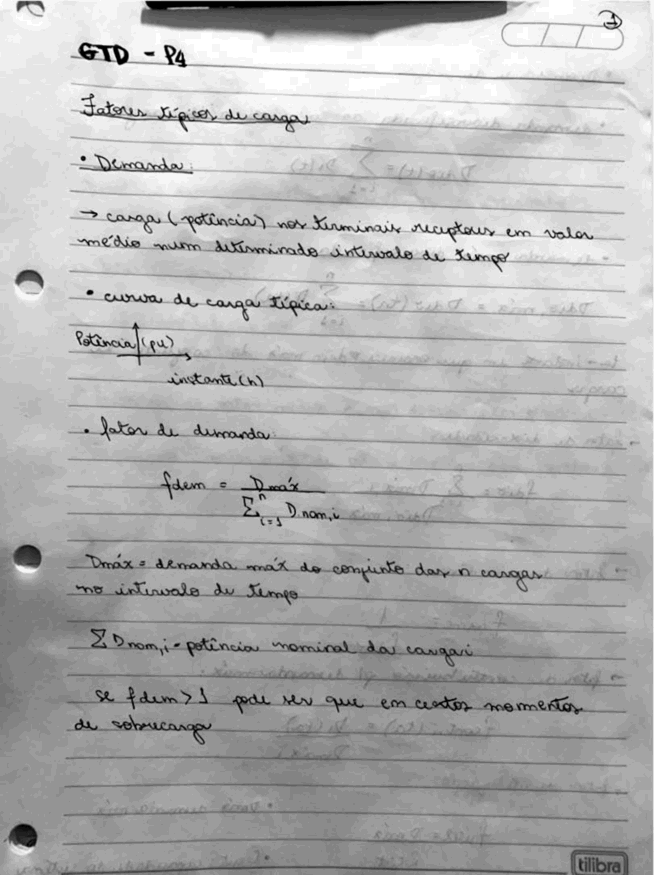 1
GTD - P4
Fatores típicos de carga
• Demanda
→ carga (potência) nos terminais receptores em valor
médio num determinado intervalo de tempo
• curva de carga típica:
Potência (pu)
instante (h)
• fator de demanda
fdem = Dmáx / Σ n i=1 Dnom,i
Dmáx = demanda máx do conjunto das n cargas
no intervalo de tempo
Σ Dnom,i = potência nominal da carga i
se fdem > 1 pode ser que em certos momentos
de sobrecarga
tilibra